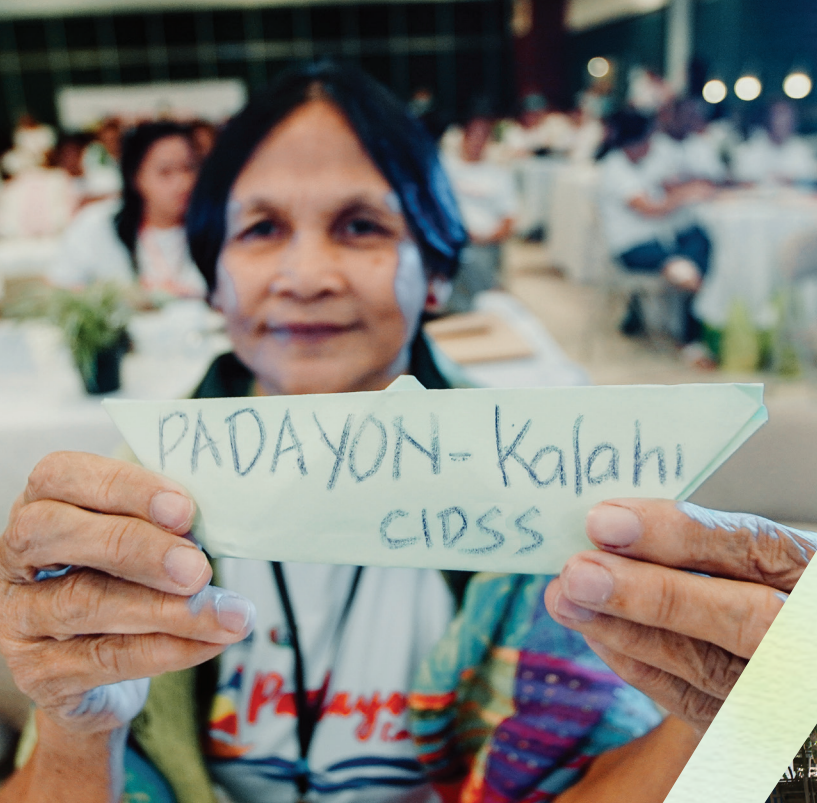 PADAYON - Kalahi
CIDSS
Padayon